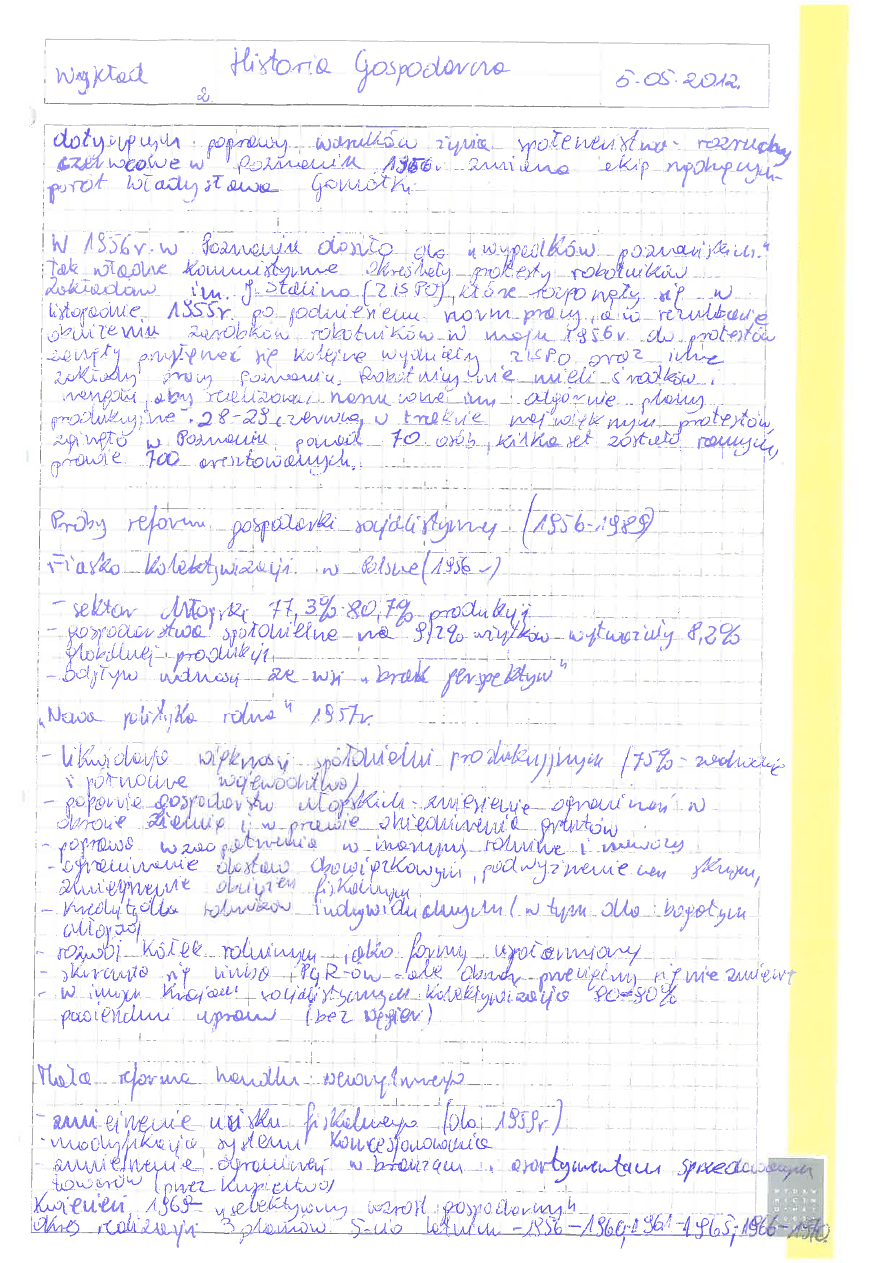 Wykład Historia Gospodarcza 5.05.2012.
2
dotyczących poprawy warunków życia społeczeństwa - rozruchy
czerwcowe w Poznaniu 1956r. zmiana ekip rządzących -
porót Władysława Gomółki.
W 1956r. w Poznaniu doszło do „wypadków poznańskich."
Tak władze komunistyczne określały protesty robotników
zakładów im. J. Stalina (ZISPO), które rozpoczęły się w
listopadzie 1955r. po podniesieniu norm pracy, a w rezultacie
obniżeniu zarobków robotników w maju 1956r. do protestów
zaczęły przyłączać się kolejne wydziały ZISPO oraz inne
zakłady pracy Poznania. Robotnicy nie mieli środków i
narzędzi, aby realizować narzucone im odgórnie plany
produkcyjne. 28-29 czerwca, w trakcie największych protestów,
zginęło w Poznaniu ponad 70 osób, kilkaset zostało rannych,
prawie 700 aresztowanych.
Próby reform gospodarki socjalistycznej (1956-1989)
Fiasko kolektywizacji w Polsce (1956 -)
- sektor chłopski 77,3% 80,7% produkcji
- gospodarstwa spółdzielcze na 9,2% użytków wytworzyły 8,2%
globalnej produkcji
- odpływ ludności ze wsi „brak perspektyw"
„Nowa polityka rolna" 1957r.
- likwidacja większości spółdzielni produkcyjnych (75% - zachodnie
i północne województwa)
- poparcie gospodarstw chłopskich - zniesienie ograniczeń w
obrocie ziemią i w prawie dziedziczenia gruntów
- poprawa zaopatrzenia w maszyny rolnicze i nawozy
- ograniczenie dostaw obowiązkowych, podwyższenie cen skupu,
zmniejszenie obciążeń fiskalnych
- kredyty dla rolników indywidualnych (w tym dla bogatych
chłopów)
- rozwój kółek rolniczych jako formy uspółdzielczenia
- skurczyła się liczba PGR-ów - ale obszar przeciętny się nie zmienił
- w innych krajach socjalistycznych kolektywizacja 80-90%
powierzchni upraw (bez Węgier)
Mała reforma handlu wewnętrznego
- zmniejszenie ucisku fiskalnego (do 1959r.)
- modyfikacja systemu koncesjonowania
- zmniejszenie ograniczeń w branżach i asortymentach sprzedawanych
towarów (przez kupiectwo)
Kwiecień 1969 - „selektywny wzrost gospodarczy"
Okres realizacji 3 planów 5-cio letnich - 1956-1960, 1961-1965, 1966-1970.